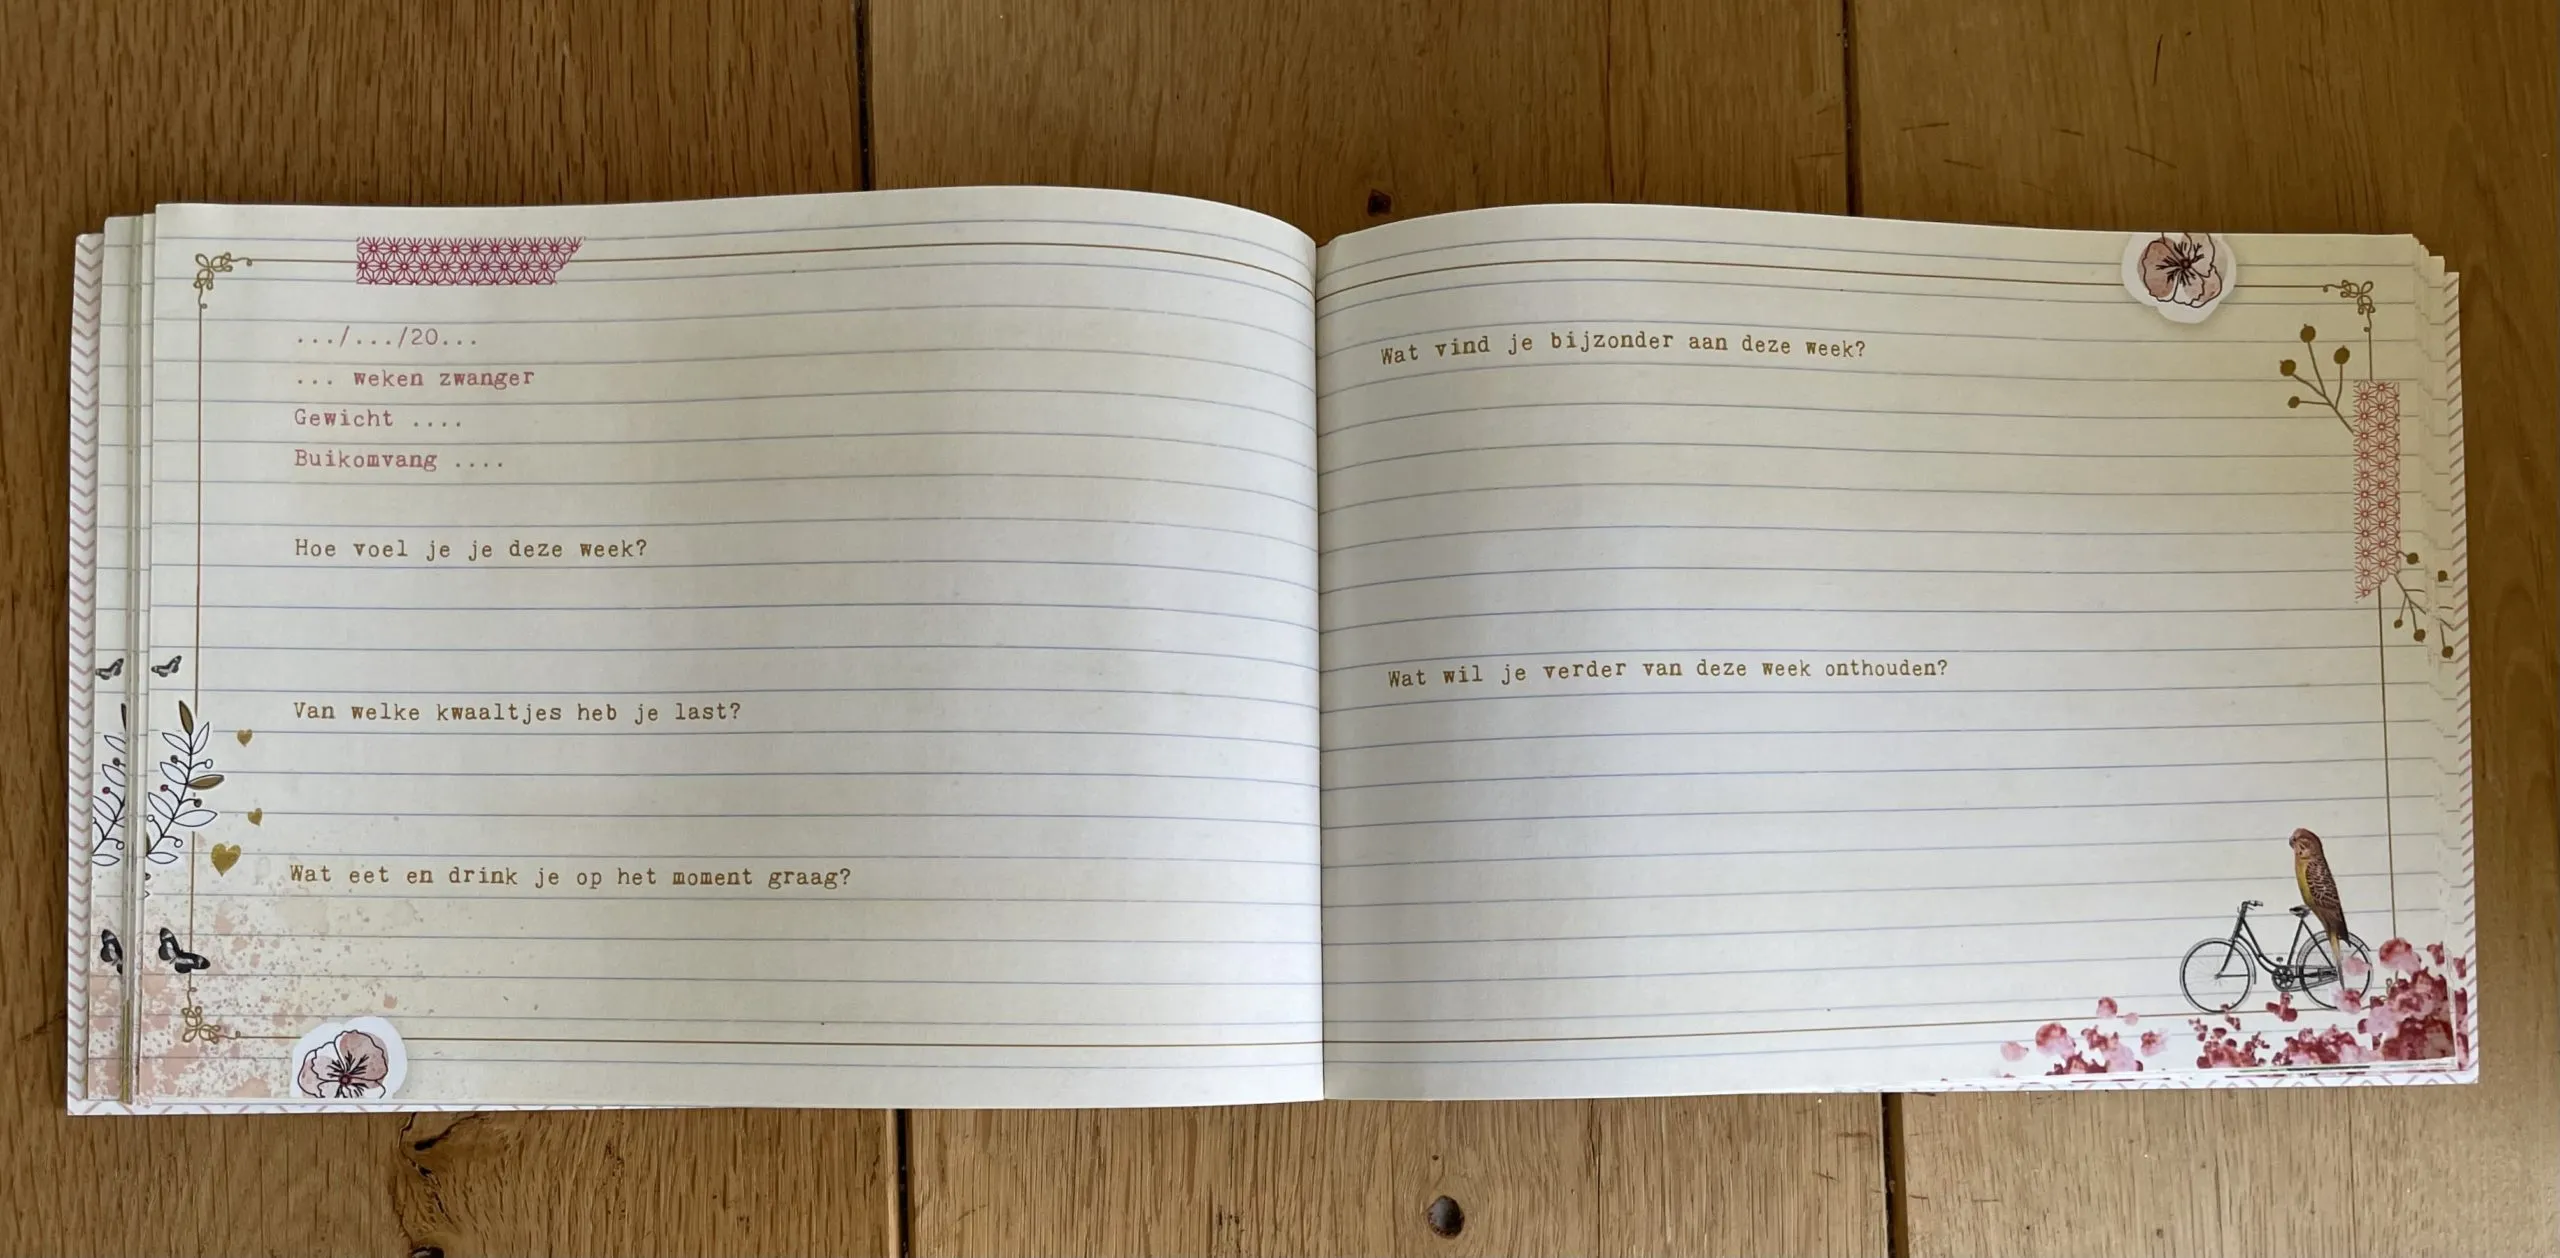 .../.../20...
... weken zwanger
Gewicht ....
Buikomvang ....
Hoe voel je je deze week?
Van welke kwaaltjes heb je last?
Wat eet en drink je op het moment graag?
Wat vind je bijzonder aan deze week?
Wat wil je verder van deze week onthouden?